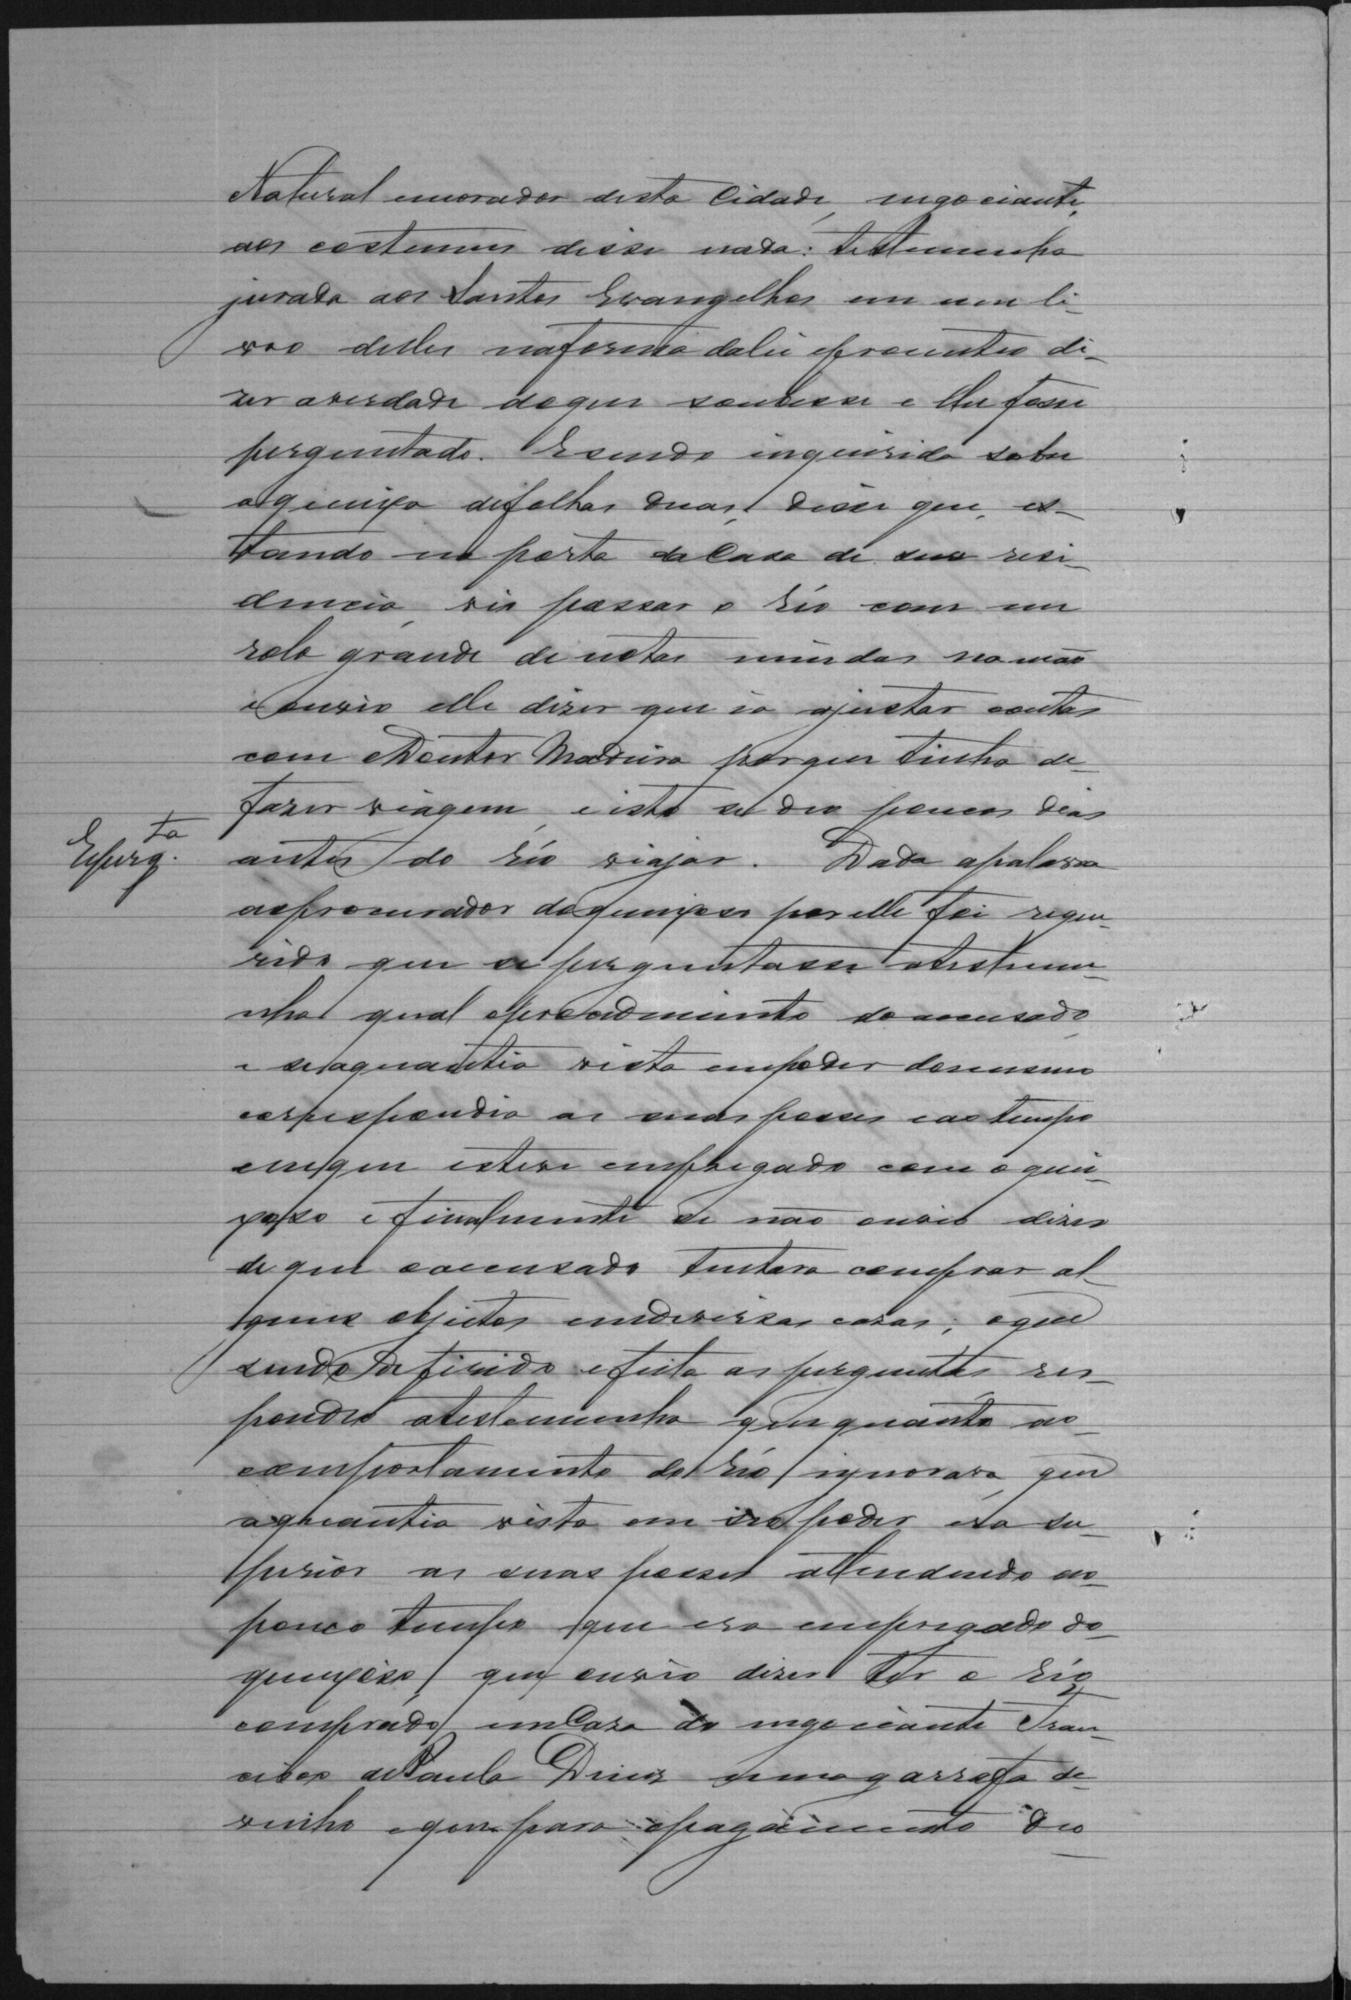 Natural emorador desta Cidade, negociante,
aos costumes disse nada: testemunha
jurada aos Santos Evangelhos em um li-
vro delles naforma dalei eprometeu di-
zer averdade doque soubesse e lhe fosse
perguntado. Esendo inquirida sobre
aqueixa defolhas duas, disse que, es-
tando na porta da Casa de sua resi-
dencia, vio passar o réo com um
rolo grande de notas miudas na mão
e ouvio elle dizer que ia ajustar contas
com o Doutor Madeira porque tinha de-
fazer viagem, e isto se deo poucos dias
antes do réo viajar. Dada apalavra
aoprocurador doqueixoso por elle foi reque-
rido que se perguntasse atestemu-
nha qual oprocedimento do accusado,
e se aquantia vista empoder domesmo
correspondia as suas posses e ao tempo
emque esteve empregado com o quei-
xoso e finalmente se não ouvio dizer
de que oaccusado tentara comprar al-
guns objectos emdiversas casas; oque
sendo deferido e feita as perguntas res-
pondeo atestemunha que quanto ao-
comportamento do réo ignorava, que
aquantia vista em seo poder era su-
perior as suas posses attendendo ao-
pouco tempo que era empregado do-
queixoso, que ouvio dizer ter o réo
comprado em Casa do negociante Fran-
cisco de Paula Diniz uma garrafa de
vinho eque para opagamento deo